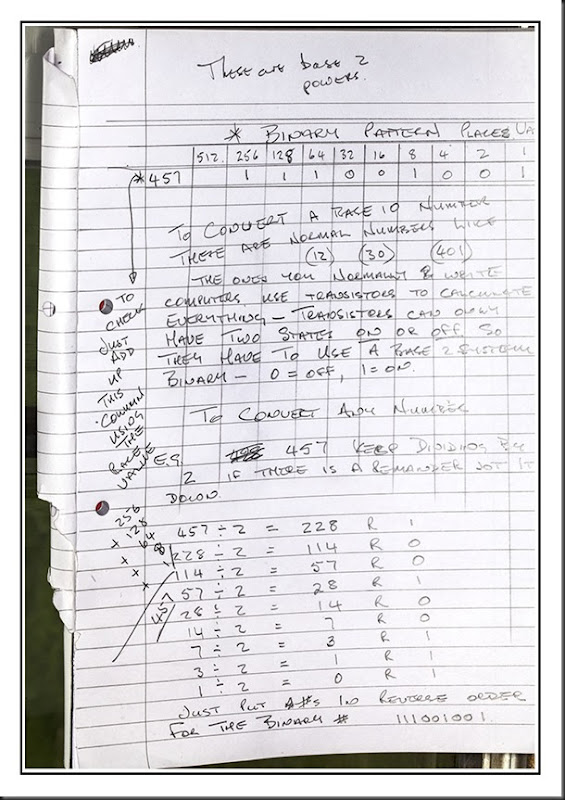 These are base 2
powers.
* BINARY PATTERN PLACES VA
512. 256 128 64 32 16 8 4 2 1
*457 1 1 1 0 0 1 0 0 1
TO CONVERT A BASE 10 NUMBER
THESE ARE NORMAL NUMBERS LIKE
(12) (30) (401)
THE ONES YOU NORMALLY WRITE
COMPUTERS USE TRANSISTORS TO CALCULATE
EVERYTHING - TRANSISTORS CAN ONLY
HAVE TWO STATES ON OR OFF SO
THEY HAVE TO USE A BASE 2 SYSTEM
BINARY - 0 = OFF, 1 = ON.
TO
CHECK
JUST
ADD
UP
THIS
COLUMN
USING
THE
PLACE
VALUE
TO CONVERT ANY NUMBER
E.G 457 KEEP DIVIDING BY
2 IF THERE IS A REMAINDER JOT IT
DOWN.
256
+ 128
+ 64
+ 8
+ 1
457
457 ÷ 2 = 228 R 1
228 ÷ 2 = 114 R 0
114 ÷ 2 = 57 R 0
57 ÷ 2 = 28 R 1
28 ÷ 2 = 14 R 0
14 ÷ 2 = 7 R 0
7 ÷ 2 = 3 R 1
3 ÷ 2 = 1 R 1
1 ÷ 2 = 0 R 1
JUST PUT #S IN REVERSE ORDER
FOR THE BINARY # 111001001.